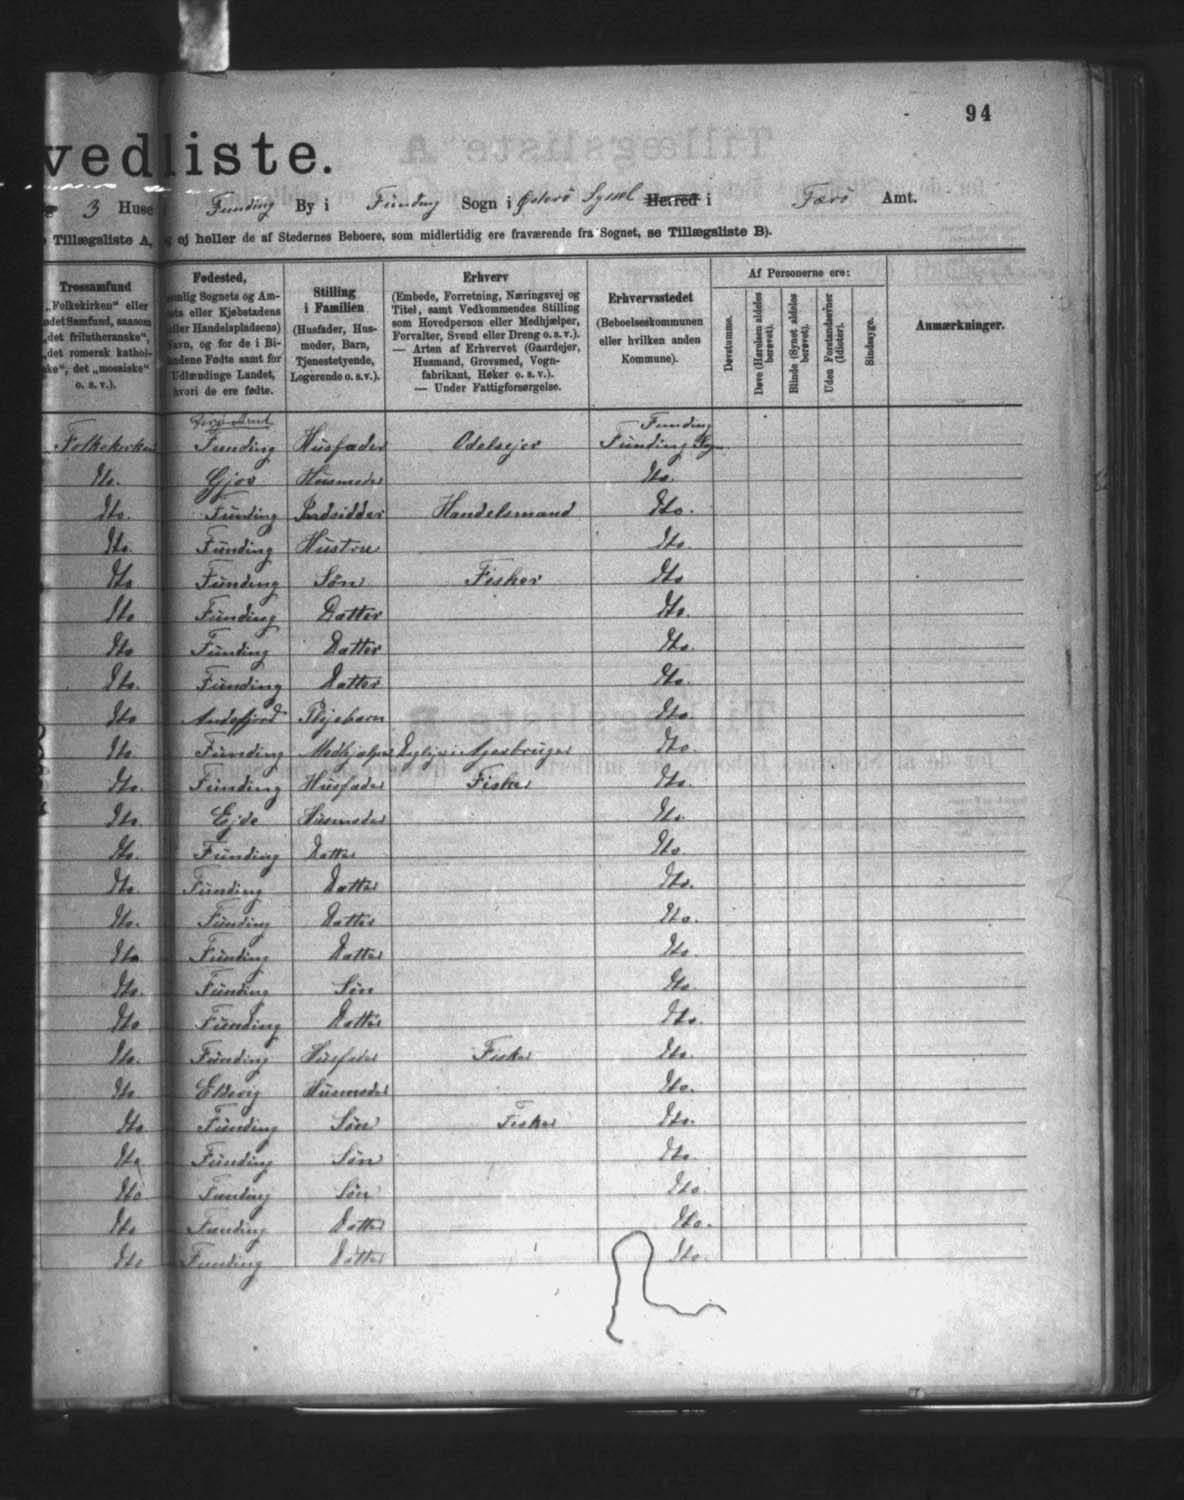 94
vedliste.
3 Huse Funding By i Funding Sogn i Østerø Syssel Herred i Færø Amt.
Tillægsliste A, ej heller de af Stedernes Beboere, som midlertidig ere fraværende fra Sognet, se Tillægsliste B).
Trossamfund
„Folkekirken“ eller
andet Samfund, saasom
„det frilutheranske“,
„det romersk kathol-
ske“, det „mosaiske“
o. s. v.).
Fødested,
nemlig Sognets og Am-
tets eller Kjøbstadens
(eller Handelspladsens)
Navn, og for de i Bi-
landene Fødte samt for
Udlændinge Landet,
hvori de ere fødte.
Stilling
i Familien
(Husfader, Hus-
moder, Barn,
Tjenestetyende,
Logerende o. s. v.).
Erhverv
(Embede, Forretning, Næringsvej og
Titel, samt Vedkommendes Stilling
som Hovedperson eller Medhjælper,
Forvalter, Svend eller Dreng o. s. v.).
— Arten af Erhvervet (Gaardejer,
Husmand, Grovsmed, Vogn-
fabrikant, Høker o. s. v.).
— Under Fattigforsørgelse.
Erhvervsstedet
(Beboelseskommunen
eller hvilken anden
Kommune).
Af Personerne ere:
Døvstumme.
Døve (Hørelsen aldeles
berøvet).
Blinde (Synet aldeles
berøvet).
Uden Forstandsevner
(Idioter).
Sindssyge.
Anmærkninger.
Funding
Folkekirken Funding Husfader Odelsejer Funding Sogn
Do. Gjov Husmoder Do.
Do. Funding Indsidder Handelsmand Do.
Do. Funding Hustru Do.
Do Funding Søn Fisker Do
Do Funding Datter Do.
Do Funding Datter Do.
Do. Funding Datter Do.
Do Andefjord Plejebarn Do.
Do. Funding Medhjælper Agerbruger Do.
Do. Funding Husfader Fisker Do.
Do. Ejde Husmoder Do.
Do. Funding Datter Do
Do. Funding Datter Do.
Do. Funding Datter Do.
Do Funding Datter Do.
Do. Funding Søn Do
Do Funding Datter Do.
Do. Funding Husfader Fisker Do.
Do Eldevig Husmoder Do.
Do Funding Søn Fisker Do.
Do Funding Søn Do.
Do Funding Søn Do.
Do Funding Datter Do.
Do Funding Datter Do.